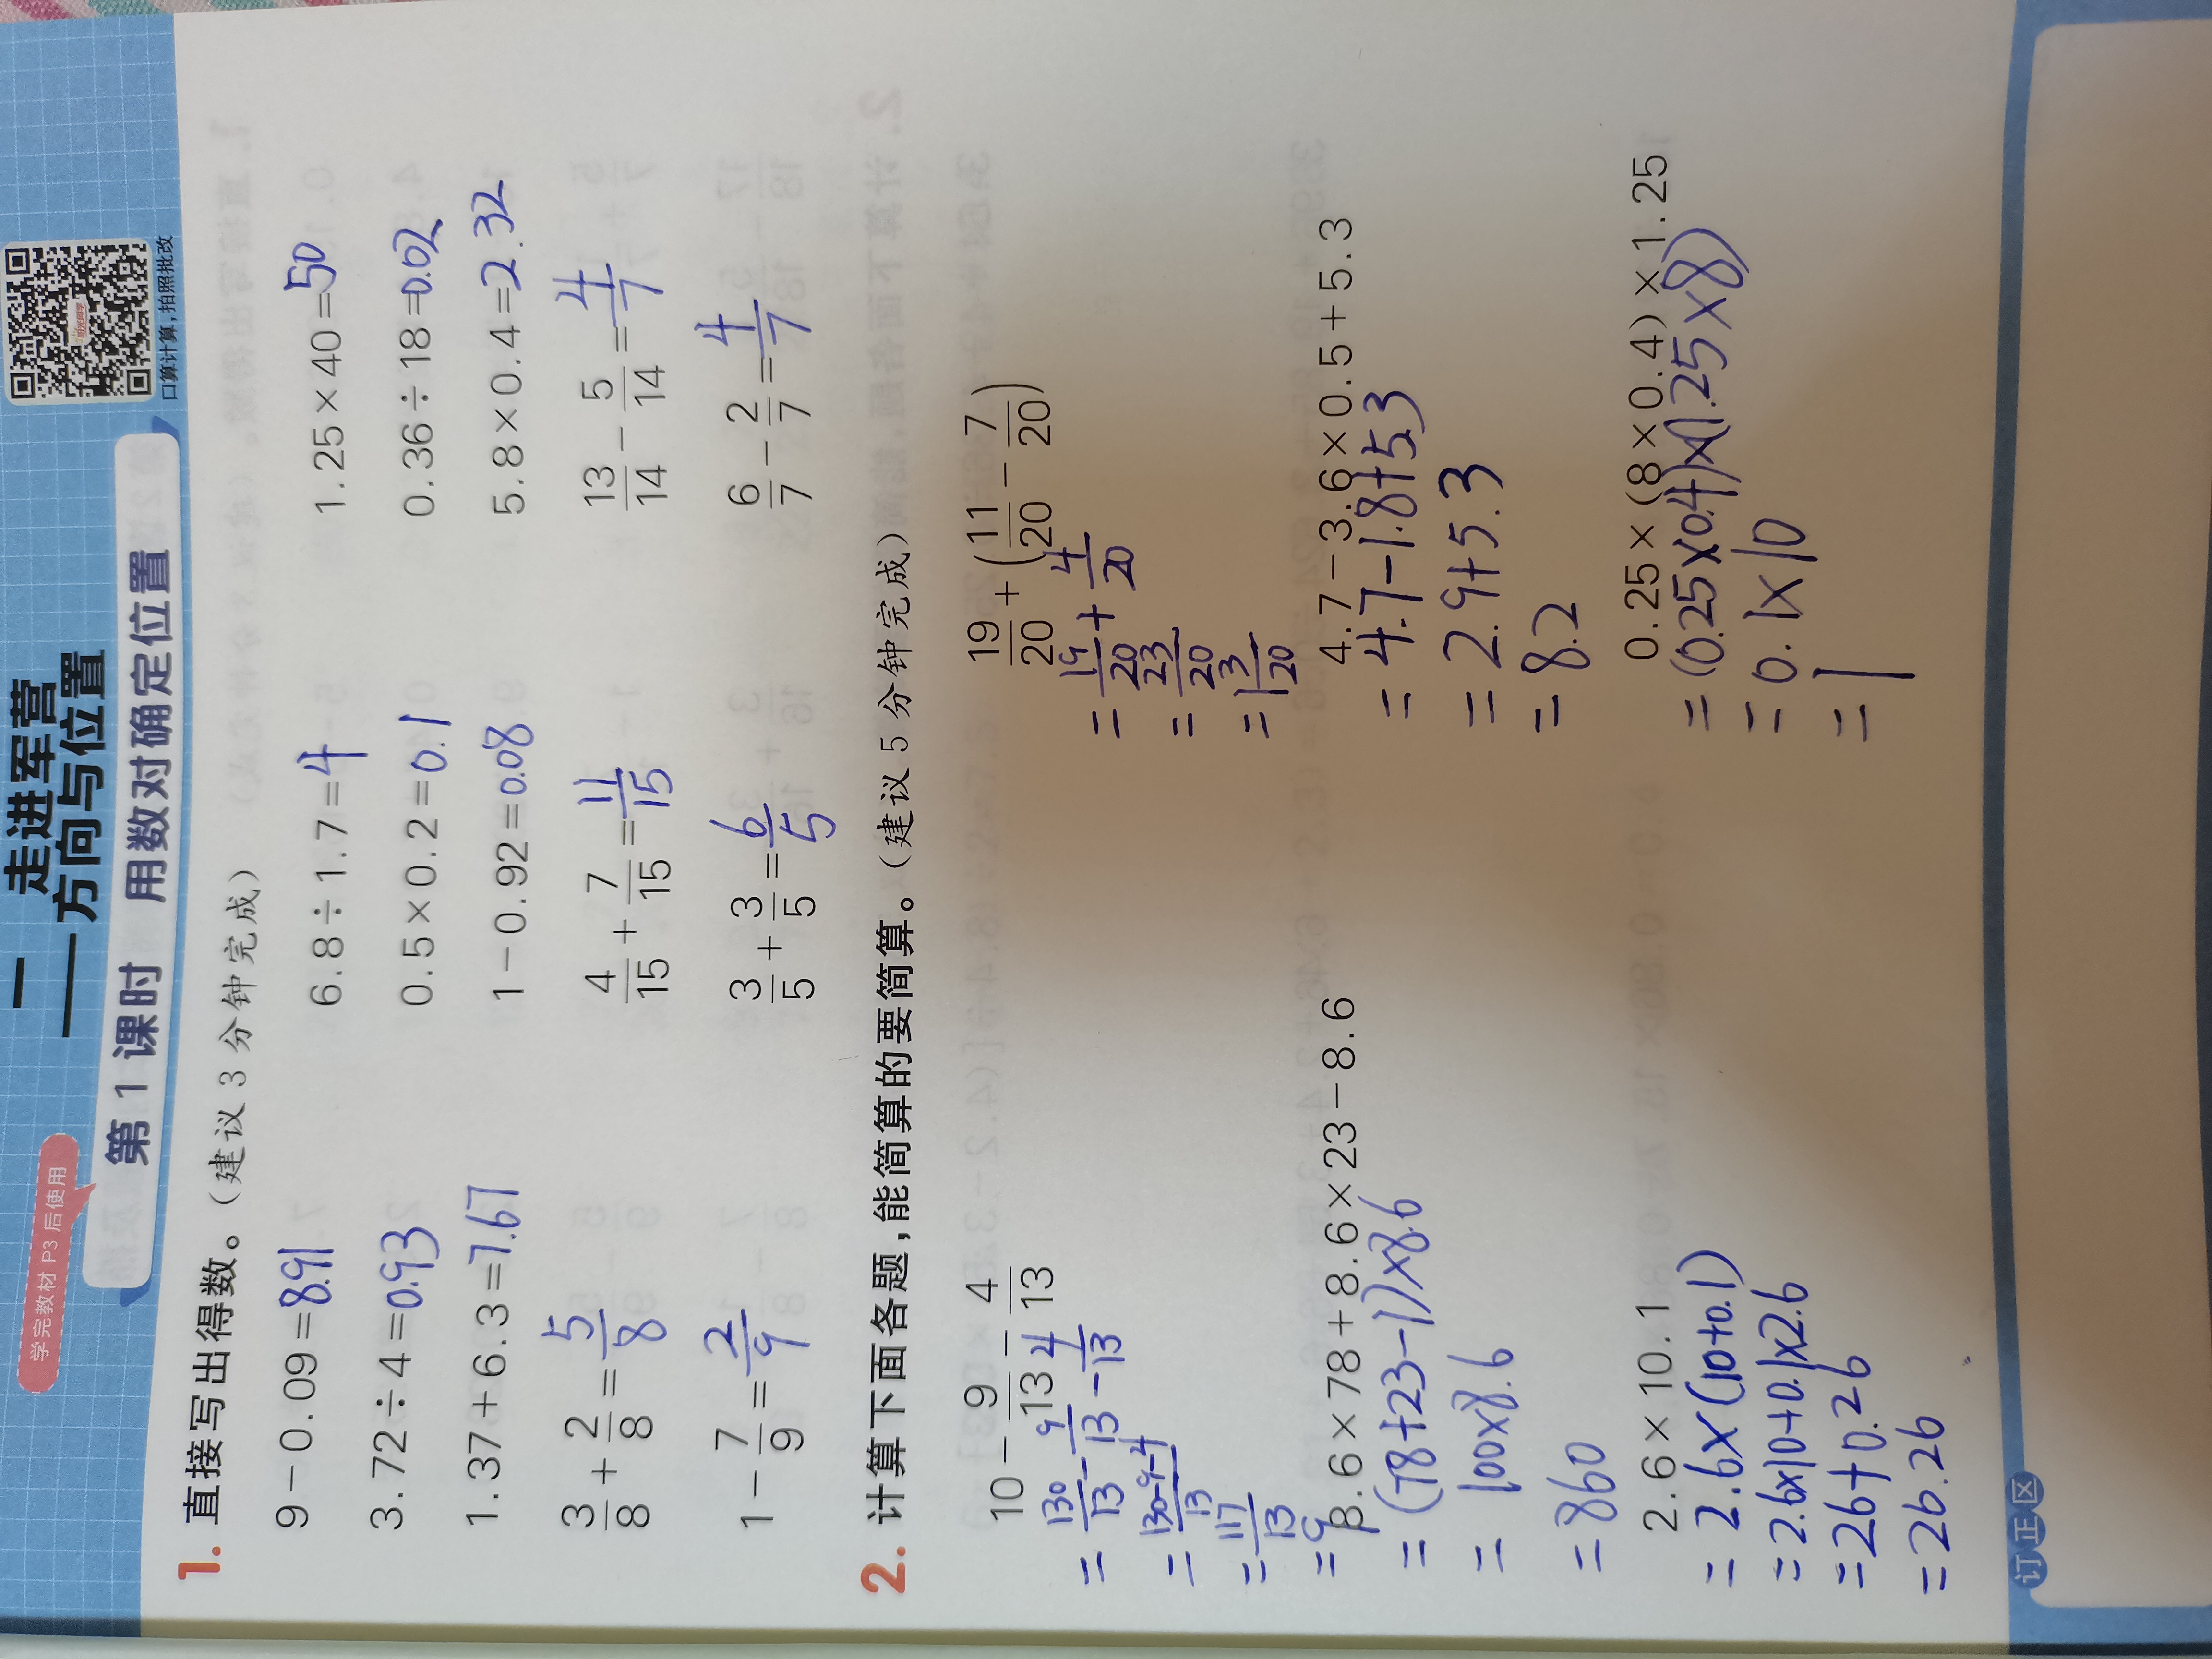 学完教材 P3 后使用
一 走进军营
——方向与位置
口算计算,拍照批改
第 1 课时 用数对确定位置
1. 直接写出得数。(建议 3 分钟完成)
9-0.09=8.91 6.8÷1.7=4 1.25×40=50
3.72÷4=0.93 0.5×0.2=0.1 0.36÷18=0.02
1.37+6.3=7.67 1-0.92=0.08 5.8×0.4=2.32
3/8+2/8=5/8 4/15+7/15=11/15 13/14-5/14=4/7
1-7/9=2/9 3/5+3/5=6/5 6/7-2/7=4/7
2. 计算下面各题,能简算的要简算。(建议 5 分钟完成)
10-9/13-4/13
=130/13-9/13-4/13
=130-9-4/13
=117/13
=9
19/20+(11/20-7/20)
=19/20+4/20
=23/20
=1 3/20
8.6×78+8.6×23-8.6
=(78+23-1)×8.6
=100×8.6
=860
4.7-3.6×0.5+5.3
=4.7-1.8+5.3
=2.9+5.3
=8.2
2.6×10.1
=2.6×(10+0.1)
=2.6×10+0.1×2.6
=26+0.26
=26.26
0.25×(8×0.4)×1.25
=(0.25×0.4)×(1.25×8)
=0.1×10
=1
订正区